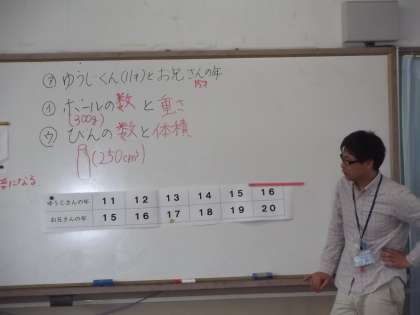 ㋐ ゆうじくん(11才)とお兄さんの年
15才
㋑ ボールの数と重さ
(300g)
㋒ びんの数と体積
(250cm³)
になる
ゆうじさんの年 11 12 13 14 15 16
お兄さんの年 15 16 17 18 19 20